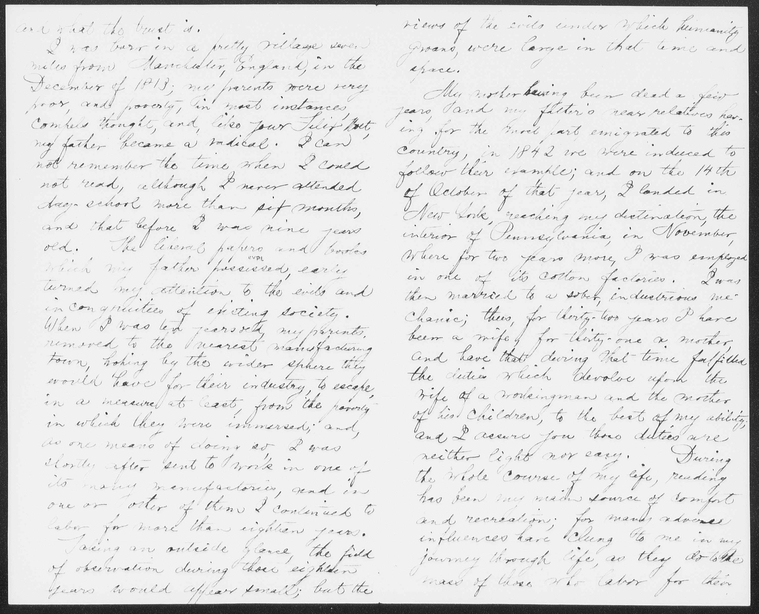 and what the worst is.
I was born in a pretty village seven
miles from Manchester, England, in the
December of 1813; my parents were very
poor, and poverty, in most instances
compels thought, and, like your
my father became a radical. I can
not remember the time when I could
not read, although I never attended
day-school more than six months,
and that before I was nine years
old. The liberal papers and books
which my father possessed, early
turned my attention to the evils and
incongruities of existing society.
When I was ten years old, my parents
removed to the nearest manufacturing
town, hoping by the wider sphere they
would have for their industry, to escape,
in a measure at least, from the poverty
in which they were immersed; and,
as one means of doing so I was
shortly after sent to work in one of
its many manufactories, and in
one or other of them I continued to
labor for more than eighteen years.
Taking an outside glance, the field
of observation during those eighteen
years would appear small; but the
views of the evils under which humanity
groans, were large in that time and
space.
My mother having been dead a few
years, and my father's near relatives hav-
ing for the most part emigrated to this
country, in 1842 we were induced to
follow their example; and on the 14th
of October of that year, I landed in
New York, reaching my destination, the
interior of Pennsylvania, in November,
where for two years more, I was employed
in one of its cotton factories. I was
then married to a sober, industrious me-
chanic; thus, for thirty-two years I have
been a wife, for thirty-one a mother,
and have during that time fulfilled
the duties which devolve upon the
wife of a workingman and the mother
of his children, to the best of my ability,
and I assure you those duties are
neither light nor easy. During
the whole course of my life, reading
has been my main source of comfort
and recreation; for many adverse
influences have clung to me in my
journey through life, as they do to the
mass of those who labor for their